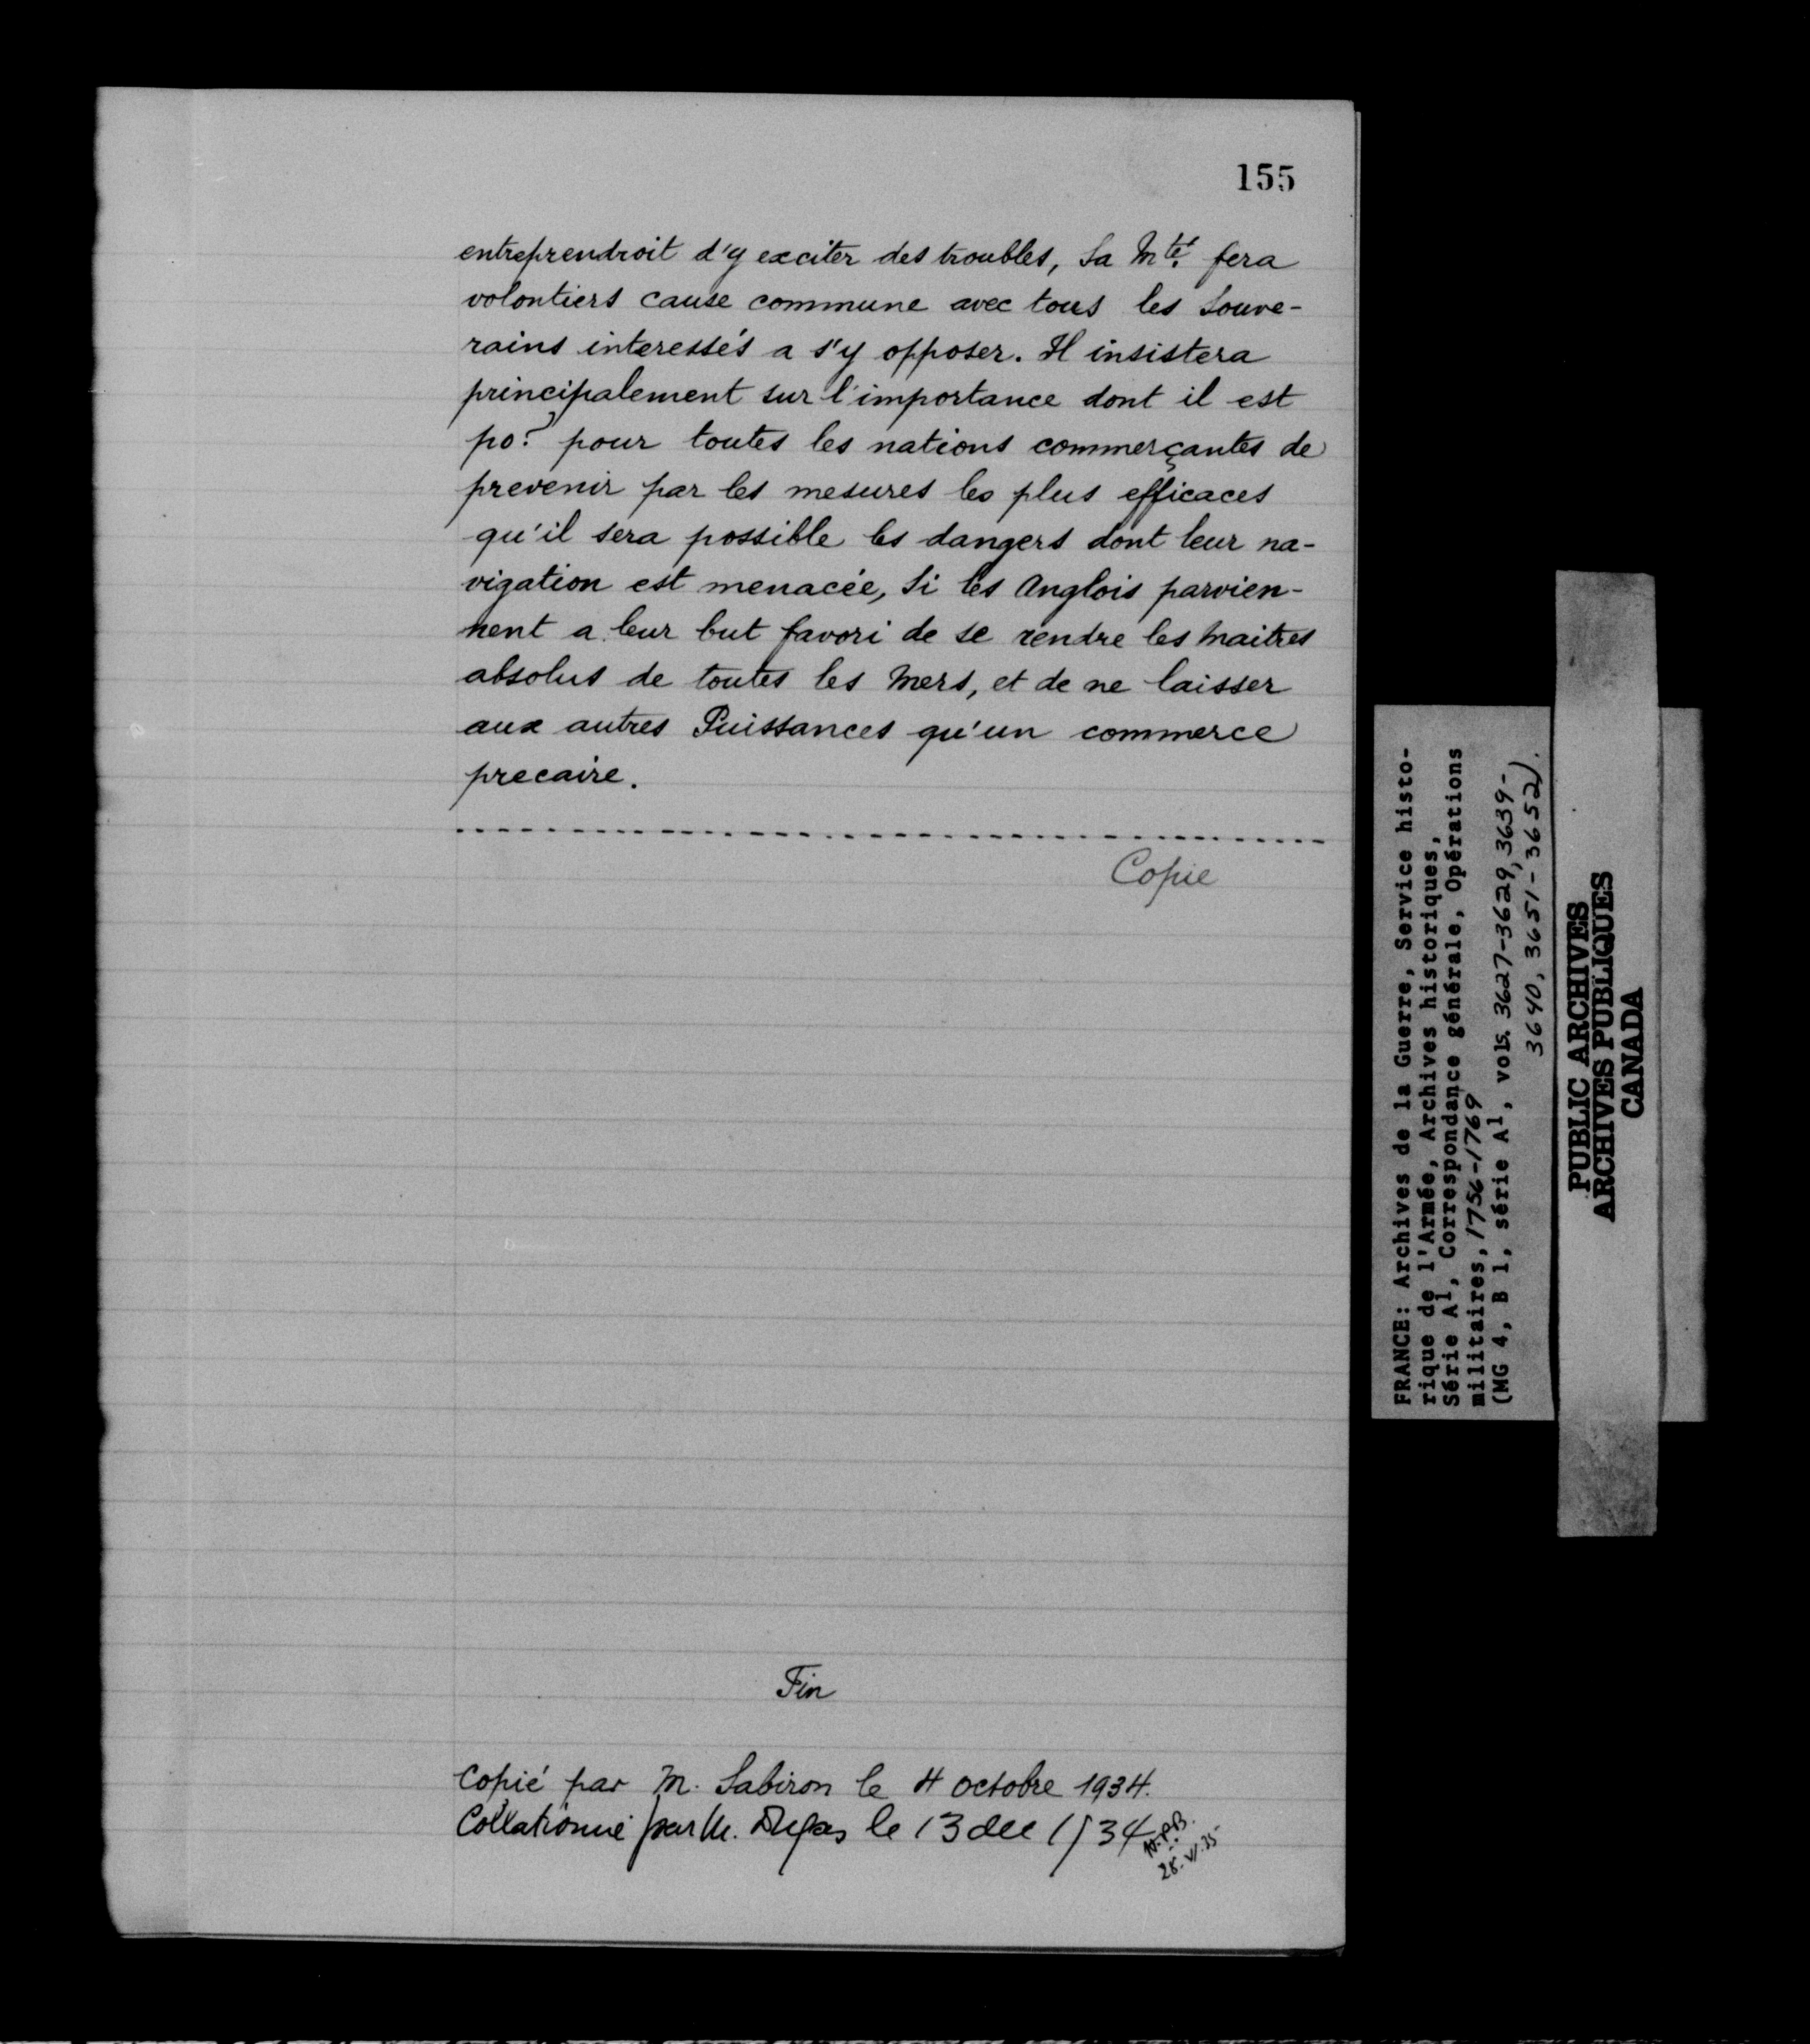 155
entreprendroit d'y exciter des troubles, Sa Mté. fera
volontiers cause commune avec tous les Souve-
rains interessés a s'y opposer. Il insistera
principalement sur l'importance dont il est
po? pour toutes les nations commerçantes de
prevenir par les mesures les plus efficaces
qu'il sera possible les dangers dont leur na-
vigation est menacée, Si les Anglois parvien-
nent a leur but favori de se rendre les Maitres
absolus de toutes les Mers, et de ne laisser
aux autres Puissances qu'un commerce
precaire.
Copie
Fin
Copié par M. Sabiron le 4 octobre 1934.
Collationné par M. le 13 dec 1934
N.P.B.
28.VI.35
FRANCE: Archives de la Guerre, Service histo-
rique de l'Armée, Archives historiques,
Série A1, Correspondance générale, Opérations
militaires, 1756-1769
(MG 4, B 1, série A1, vols. 3627-3629, 3639-
3640, 3651-3652).
PUBLIC ARCHIVES
ARCHIVES PUBLIQUES
CANADA